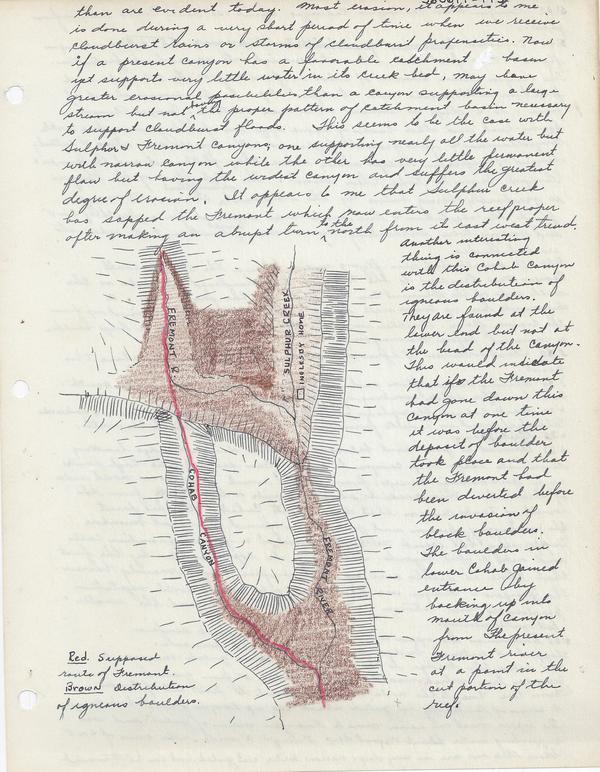 than are evident today. Most erosion, it appears to me
is done during a very short period of time when we receive
cloudburst rains or storms of cloudburst propensities. Now
if a present canyon has a favorable catchment basin
yet supports very little water in its creek bed, may have
greater erosional possibilities than a canyon supporting a large
stream but not having the proper pattern of catchment basin necessary
to support cloudburst floods. This seems to be the case with
Sulphur & Fremont Canyons; one supporting nearly all the water but
with narrow canyon while the other has very little permanent
flow but having the widest canyon and suffers the greatest
degree of erosion. It appears to me that Sulphur Creek
has sapped the Fremont which now enters the reef proper
after making an abrupt turn to the north from its east west trend.
Another interesting
thing is connected
with this Cohab Canyon
is the distribution of
igneous boulders.
They are found at the
lower end but not at
the head of the canyon.
This would indicate
that if the Fremont
had gone down this
canyon at one time
it was before the
deposit of boulder
took place and that
the Fremont had
been diverted before
the invasion of
black boulders.
The boulders in
lower Cohab gained
entrance by
backing up into
mouth of Canyon
from The present
Fremont river
at a point in the
cut portion of the
reef.
FREMONT R.
SULPHUR CREEK
INGLESBY HOME
COHAB
CANYON
FREMONT
RIVER
Red. Supposed
route of Fremont.
Brown Distribution
of igneous boulders.